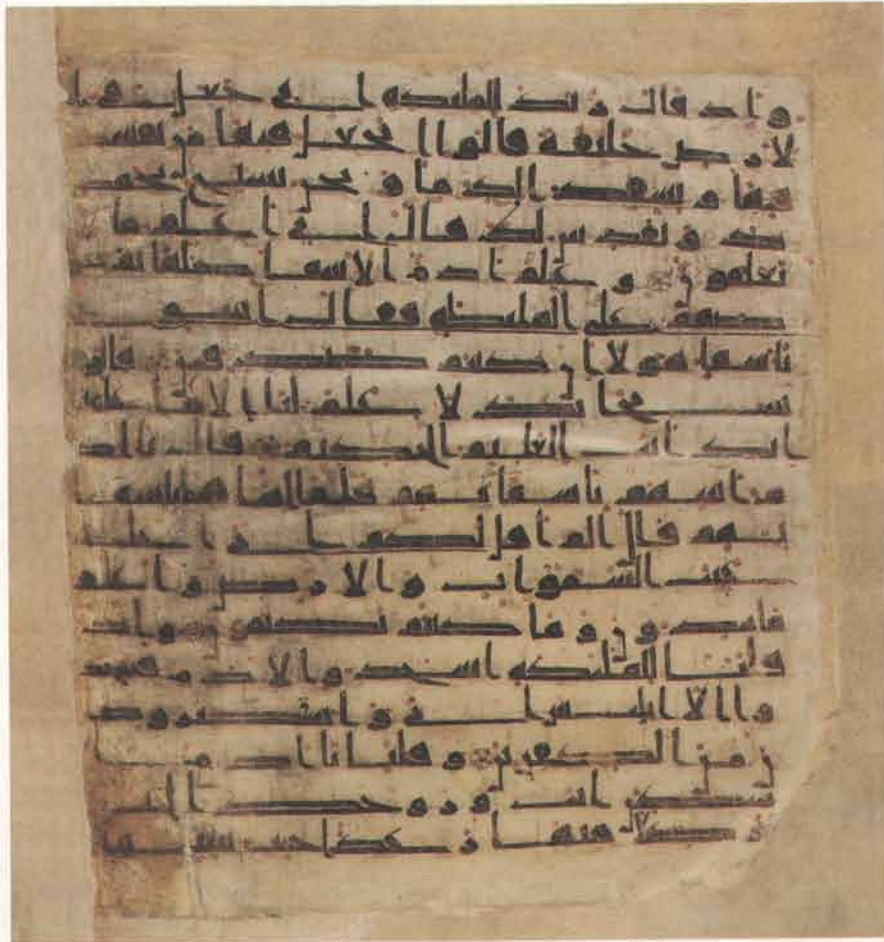 واذ قال ربك للملئكه اني جعل في ا
لارض خليفة قالوا اتجعل فيها من يفسد
فيها ويسفك الدما ونحن نسبح بحمد
ك ونقدس لك قال اني اعلم ما
تعلمون وعلم ادم الاسما كلها ثم عر
ضهم على الملئكه فقال انبوني
باسما هولا ان كنتم صدقين قالوا
سبحنك لا علم لنا الا ما علمتنا
انك انت العليم الحكيم قال يادم
انبهم باسمايهم فلما انباهم باسما
يهم قال الم اقل لكم اني اعلم
غيب السموات والارض واعلم
ما تبدون وما كنتم تكتمون واذ
قلنا للملئكه اسجدوا لادم فسجد
وا الا ابليس ابى واستكبر وكا
ن من الكفرين وقلنا يادم ا
سكن انت وزوجك الجنة
وكلا منها رغدا حيث شيتما